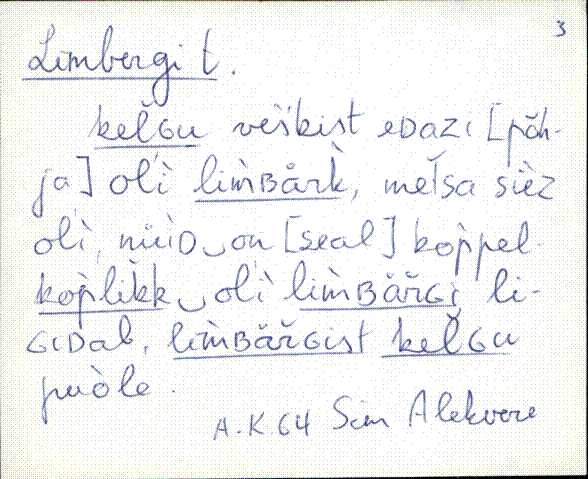 3
Limbergi t.
kel̆Gu veskist eDAZi [põh-
ja] olì lim̀Bårk, metsa sìez
olì, nüüD‿on [seal] kop̀pel.
kop̀lik̀k‿olì lim̀Bår̆Gi li-
GiDal, lim̀Bår̆Gist kel̆Gu
puòle.
A.K. 64 Sim Alekvere